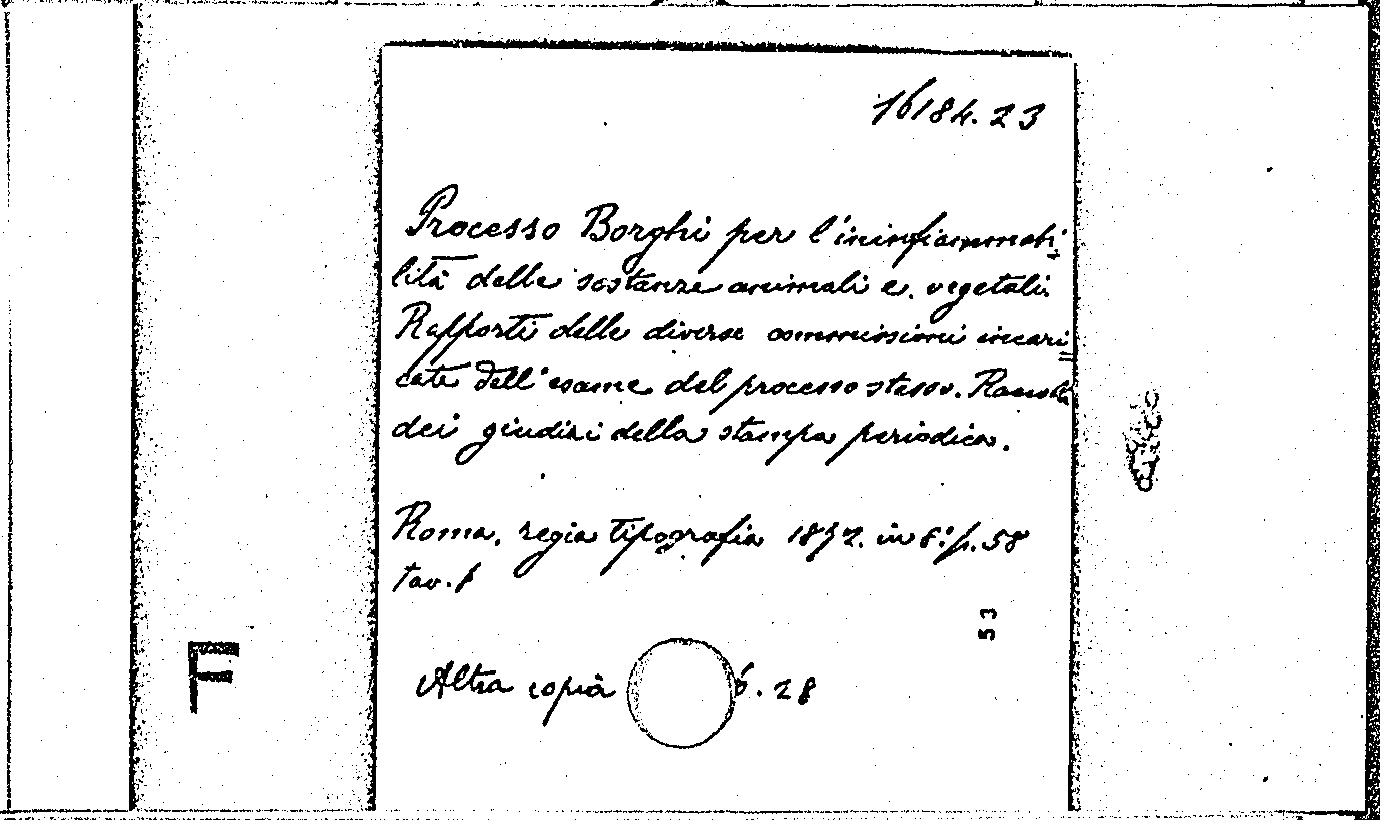 16184.23
Processo Borghi per l'ininfiammabi
lità delle sostanze animali e vegetali
Rapporti delle diverse commissioni incari
cate dell'esame del processo stesso. Raccolta
dei giudizi della stampa periodica.
Roma, regia tipografia 1892. in 8° p. 58
tav. 1
53
F
Altra copia 6.28